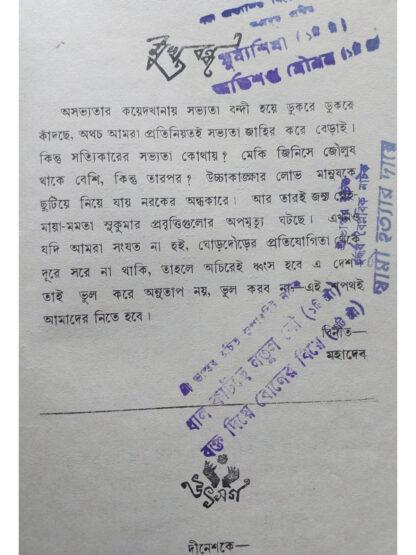 মুখবন্ধ
মুর্শিদাবাদ
অভিশপ্ত যৌবন
অসভ্যতার কয়েদখানায় সভ্যতা বন্দী হয়ে ডুকরে ডুকরে
কাঁদছে, অথচ আমরা প্রতিনিয়তই সভ্যতা জাহির করে বেড়াই।
কিন্তু সত্যিকারের সভ্যতা কোথায়? মেকি জিনিসে জৌলুষ
থাকে বেশি, কিন্তু তারপর? উচ্চাকাঙ্ক্ষার লোভ মানুষকে
ছুটিয়ে নিয়ে যায় নরকের অন্ধকারে। আর তারই জন্য
মায়া-মমতা সুকুমার প্রবৃত্তিগুলোর অপমৃত্যু ঘটছে। এখনও
যদি আমরা সংযত না হই, ঘোড়দৌড়ের প্রতিযোগিতা থেকে
দূরে সরে না থাকি, তাহলে অচিরেই ধ্বংস হবে এ দেশ।
তাই ভুল করে অনুতাপ নয়, ভুল করব না—এই শপথই
আমাদের নিতে হবে।
বিনীত—
মহাদেব
স্বামী হত্যার দায়ে
ধান কাটতে নতুন বৌ
রক্ত দিয়ে বোনের বিয়ে
উৎসর্গ
দীনেশকে—